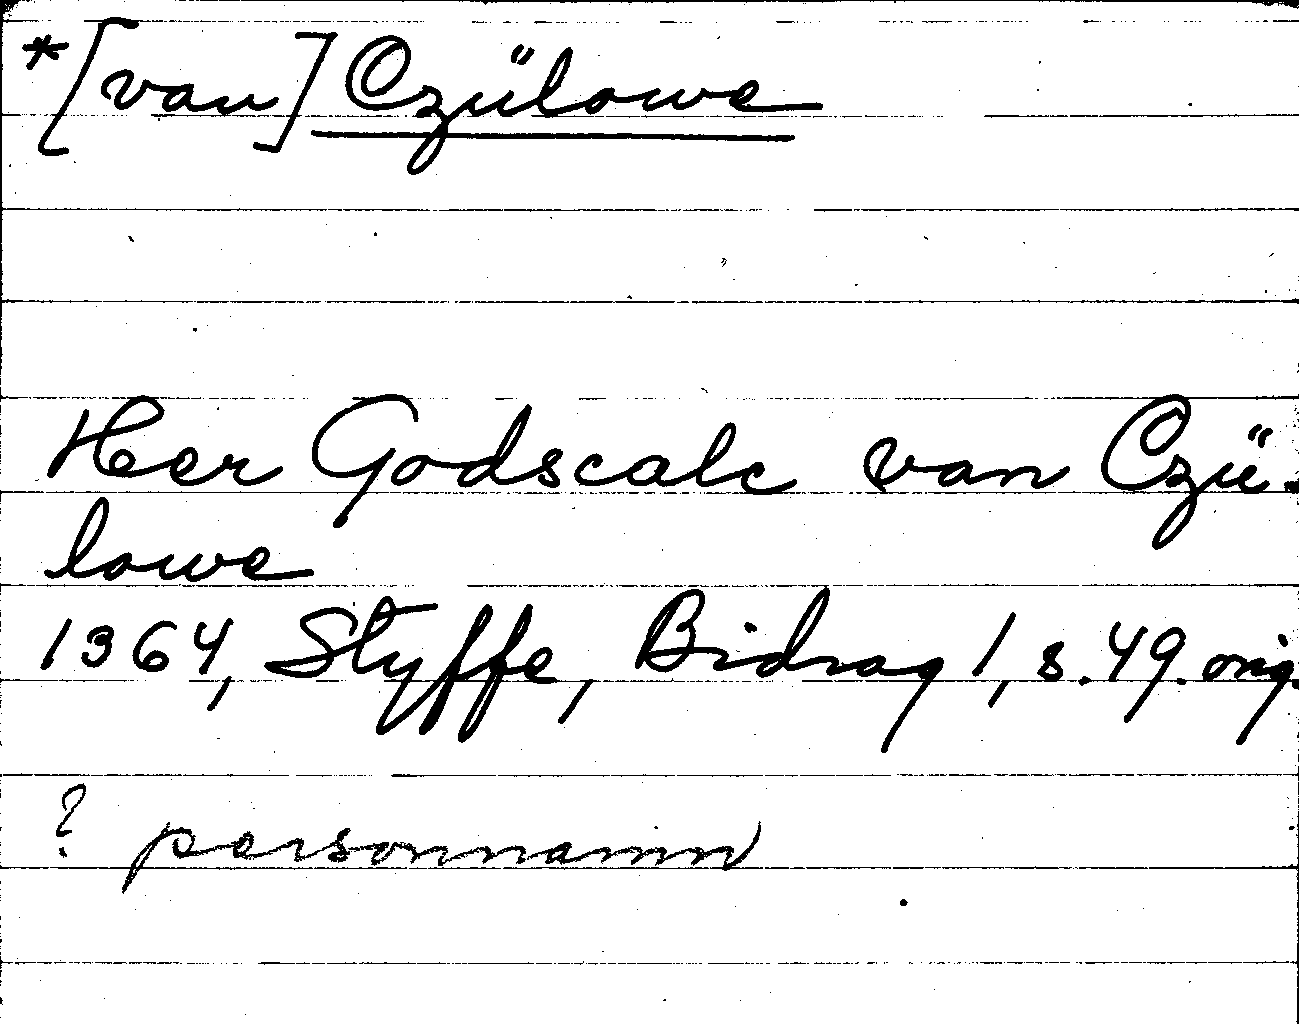 *[van] Czülowe
Her Godscalc van Czü-
lowe
1364, Styffe, Bidrag 1, s. 49. orig.
? personnamn